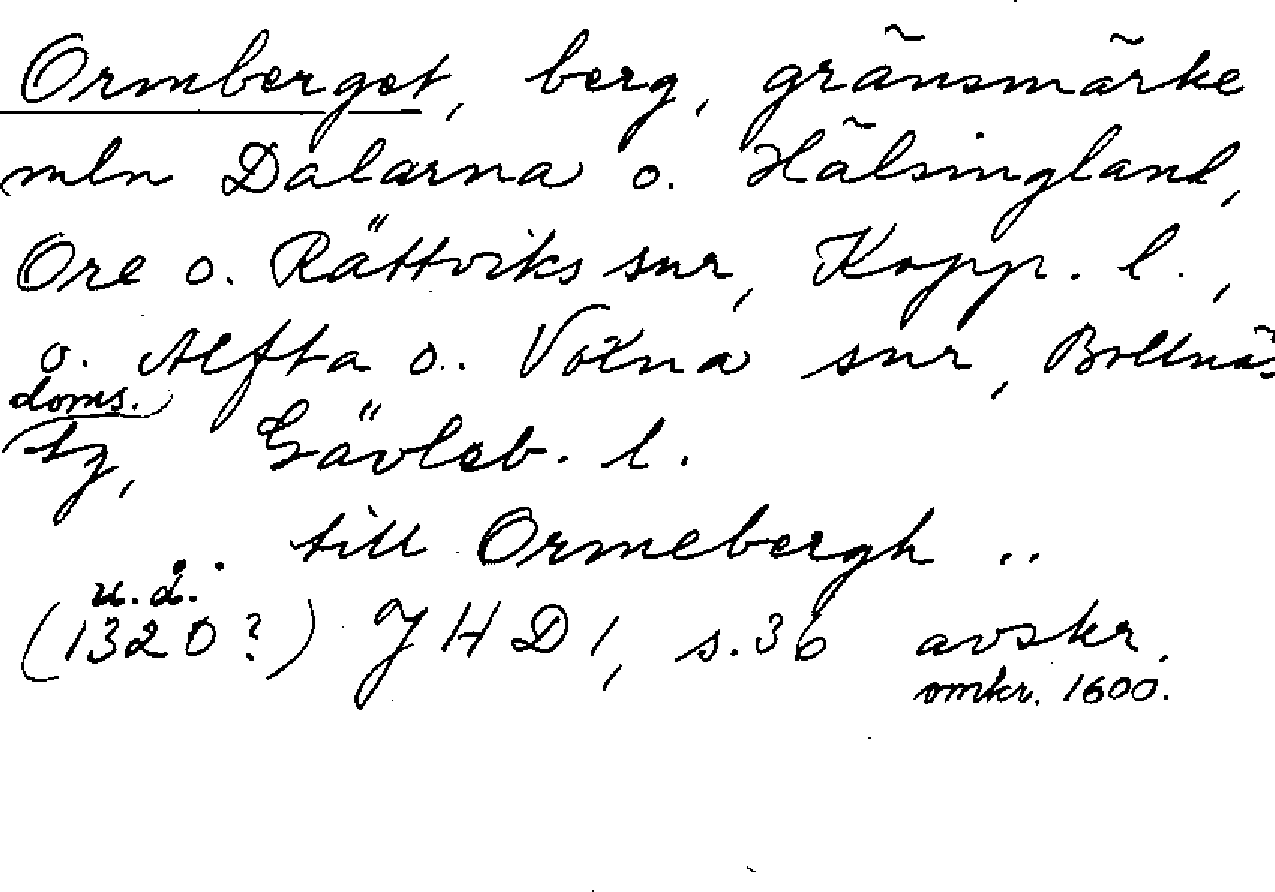 Ormberget, berg, gränsmärke
mln Dalarna o. Hälsingland,
Ore o. Rättviks snr, Kopp. l.,
o. Alfta o. Voxna snr, Bollnäs
doms.
tg, Gävleb. l.
.. till Ormebergh ..
u.å.
(1320?) JHD 1, s. 36 avskr.
omkr. 1600.